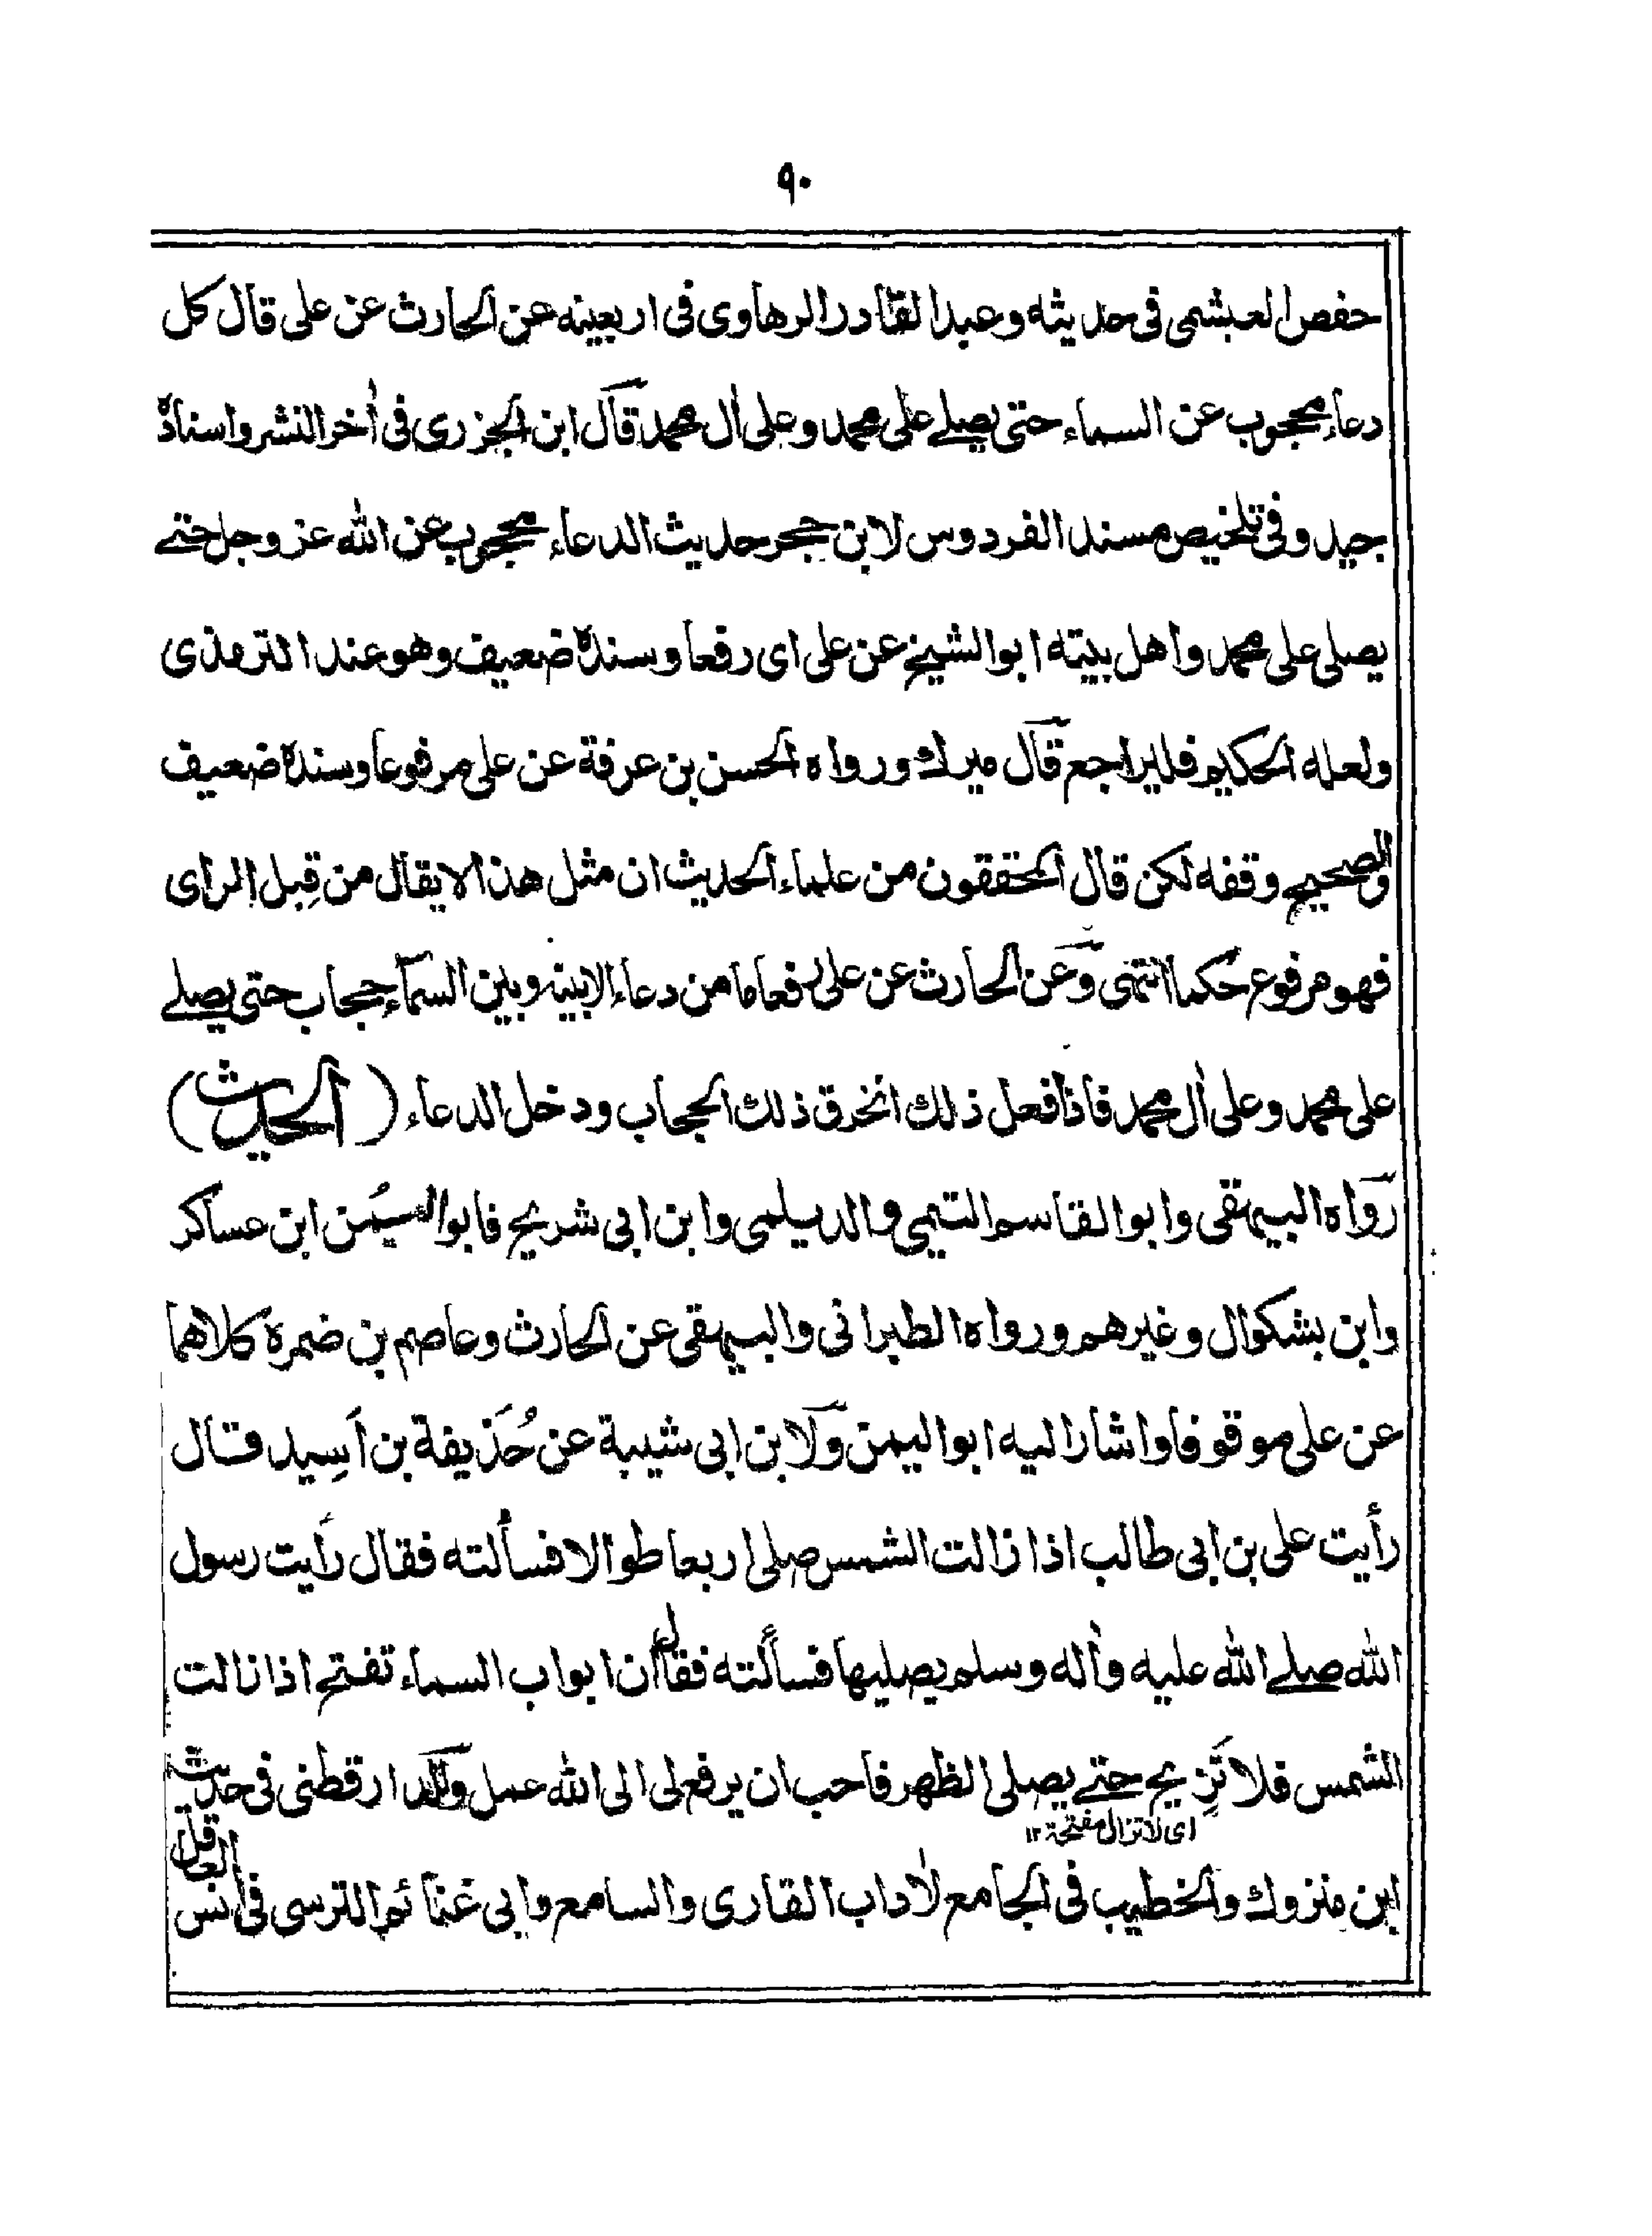 ٩٠
حفص العبشمى فى حديثه وعبد القادر الرهاوى فى اربعينه عن الحارث عن على قال كل
دعاء محجوب عن السماء حتى يصلے على محمد وعلى اٰل محمد قال ابن الجزرى فى اٰخر النشر واسناده
جيد وفى تلخيص مسند الفردوس لابن حجر حديث الدعاء محجوب عن الله عز وجل حتے
يصلى على محمد واهل بيته ابو الشيخ عن على اى رفعا وسنده ضعيف وهو عند الترمذى
ولعله الحكيم فليراجع قال ميرك ورواه الحسن بن عرفة عن على مرفوعا وسنده ضعيف
والصحيح وقفه لكن قال المحققون من علماء الحديث ان مثل هذا لا يقال من قِبل الراى
فهو مرفوع حُكما انتهى وعن الحارث عن على رفعا ما من دعاء الا بينه وبين السماء حجاب حتى يصلے
على محمد وعلى اٰل محمد فاذا فعل ذلك انخرق ذلك الحجاب ودخل الدعاء (الحديث)
رواه البيهقى وابو القاسم التيمى والديلمى وابن ابى شريح فابو اليُمن ابن عساكر
وابن بشكوال وغيرهم ورواه الطبرانى والبيهقى عن الحارث وعاصم بن ضمرة كلاهما
عن على موقوفا واشار اليه ابو اليمن ولابن ابى شيبة عن حُذَيفة بن اَسِيد قال
رأيت على بن ابى طالب اذا زالت الشمس صلى اربعا طوالا فسألته فقال رأيت رسول
الله صلے الله عليه واٰله وسلم يصليها فسألته فقال ان ابواب السماء تفتح اذا زالت
الشمس فلا تَزِيح حتے يصلى الظهر فاحب ان يرفع لى الى الله عمل وللدارقطنى فى حديث
اى لا تزال مفتحة ١٢
ابن منزوك والخطيب فى الجامع لاٰداب القارى والسامع وابى غنائم الترسى فى انس
العاقل